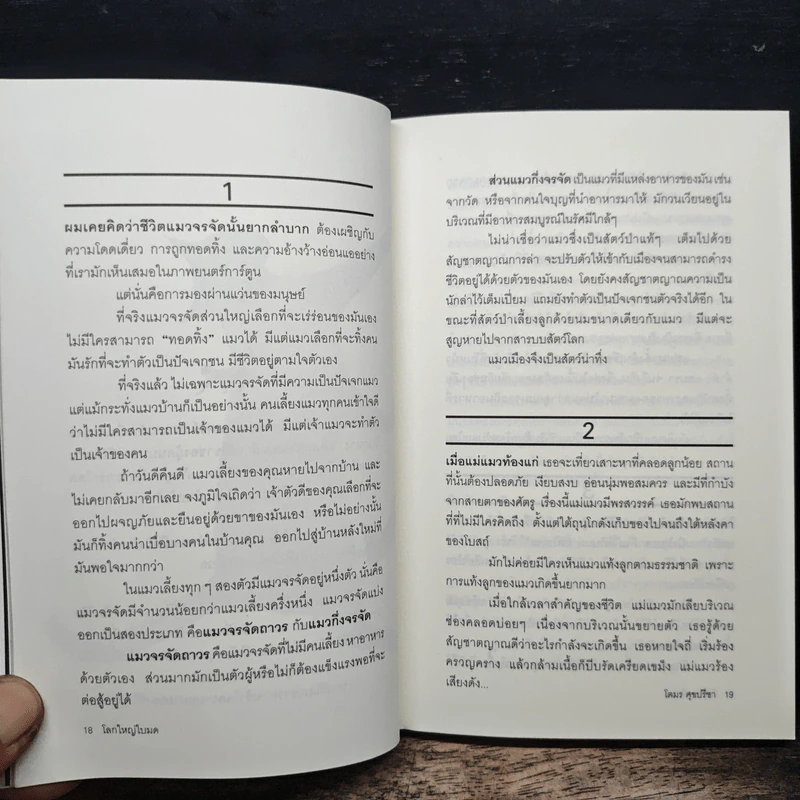 1
ผมเคยคิดว่าชีวิตแมวจรจัดนั้นยากลำบาก ต้องเผชิญกับ
ความโดดเดี่ยว การถูกทอดทิ้ง และความอ้างว้างอ่อนแออย่าง
ที่เรามักเห็นเสมอในภาพยนตร์การ์ตูน
แต่นั่นคือการมองผ่านแว่นของมนุษย์
ที่จริงแมวจรจัดส่วนใหญ่เลือกที่จะเร่ร่อนของมันเอง
ไม่มีใครสามารถ “ทอดทิ้ง” แมวได้ มีแต่แมวเลือกที่จะทิ้งคน
มันรักที่จะทำตัวเป็นปัจเจกชน มีชีวิตอยู่ตามใจตัวเอง
ที่จริงแล้ว ไม่เฉพาะแมวจรจัดที่มีความเป็นปัจเจกแมว
แต่แม้กระทั่งแมวบ้านก็เป็นอย่างนั้น คนเลี้ยงแมวทุกคนเข้าใจดี
ว่าไม่มีใครสามารถเป็นเจ้าของแมวได้ มีแต่เจ้าแมวจะทำตัว
เป็นเจ้าของคน
ถ้าวันดีคืนดี แมวเลี้ยงของคุณหายไปจากบ้าน และ
ไม่เคยกลับมาอีกเลย จงภูมิใจเถิดว่า เจ้าตัวดีของคุณเลือกที่จะ
ออกไปผจญภัยและยืนอยู่ด้วยขาของมันเอง หรือไม่อย่างนั้น
มันก็ทิ้งคนน่าเบื่อบางคนในบ้านคุณ ออกไปสู่บ้านหลังใหม่ที่
มันพอใจมากกว่า
ในแมวเลี้ยงทุก ๆ สองตัวมีแมวจรจัดอยู่หนึ่งตัว นั่นคือ
แมวจรจัดมีจำนวนน้อยกว่าแมวเลี้ยงครึ่งหนึ่ง แมวจรจัดแบ่ง
ออกเป็นสองประเภท คือแมวจรจัดถาวร กับแมวกึ่งจรจัด
แมวจรจัดถาวร คือแมวจรจัดที่ไม่มีคนเลี้ยง หาอาหาร
ด้วยตัวเอง ส่วนมากมักเป็นตัวผู้หรือไม่ก็ต้องแข็งแรงพอที่จะ
ต่อสู้อยู่ได้
18 โลกใหญ่ใบมด
ส่วนแมวกึ่งจรจัด เป็นแมวที่มีแหล่งอาหารของมัน เช่น
จากวัด หรือจากคนใจบุญที่นำอาหารมาให้ มักวนเวียนอยู่ใน
บริเวณที่มีอาหารสมบูรณ์ในรัศมีใกล้ๆ
ไม่น่าเชื่อว่าแมวซึ่งเป็นสัตว์ป่าแท้ๆ เต็มไปด้วย
สัญชาตญาณการล่า จะปรับตัวให้เข้ากับเมืองจนสามารถดำรง
ชีวิตอยู่ได้ด้วยตัวของมันเอง โดยยังคงสัญชาตญาณความเป็น
นักล่าไว้เต็มเปี่ยม แถมยังทำตัวเป็นปัจเจกชนตัวจริงได้อีก ใน
ขณะที่สัตว์ป่าเลี้ยงลูกด้วยนมขนาดเดียวกับแมว มีแต่จะ
สูญหายไปจากสารบบสัตว์โลก
แมวเมืองจึงเป็นสัตว์น่าทึ่ง
2
เมื่อแม่แมวท้องแก่ เธอจะเที่ยวเสาะหาที่คลอดลูกน้อย สถาน
ที่นั้นต้องปลอดภัย เงียบสงบ อ่อนนุ่มพอสมควร และมีที่กำบัง
จากสายตาของศัตรู เรื่องนี้แม่แมวมีพรสวรรค์ เธอมักพบสถาน
ที่ที่ไม่มีใครคิดถึง ตั้งแต่ใต้ถุนโกดังเก็บของไปจนถึงใต้หลังคา
ของโบสถ์
มักไม่ค่อยมีใครเห็นแมวแท้งลูกตามธรรมชาติ เพราะ
การแท้งลูกของแมวเกิดขึ้นยากมาก
เมื่อใกล้เวลาสำคัญของชีวิต แม่แมวมักเลียบริเวณ
ช่องคลอดบ่อยๆ เนื่องจากบริเวณนั้นขยายตัว เธอรู้ด้วย
สัญชาตญาณดีว่าอะไรกำลังจะเกิดขึ้น เธอหายใจถี่ เริ่มร้อง
ครวญคราง แล้วกล้ามเนื้อก็บีบรัดเครียดเขม็ง แม่แมวร้อง
เสียงดัง...
โตมร ศุขปรีชา 19